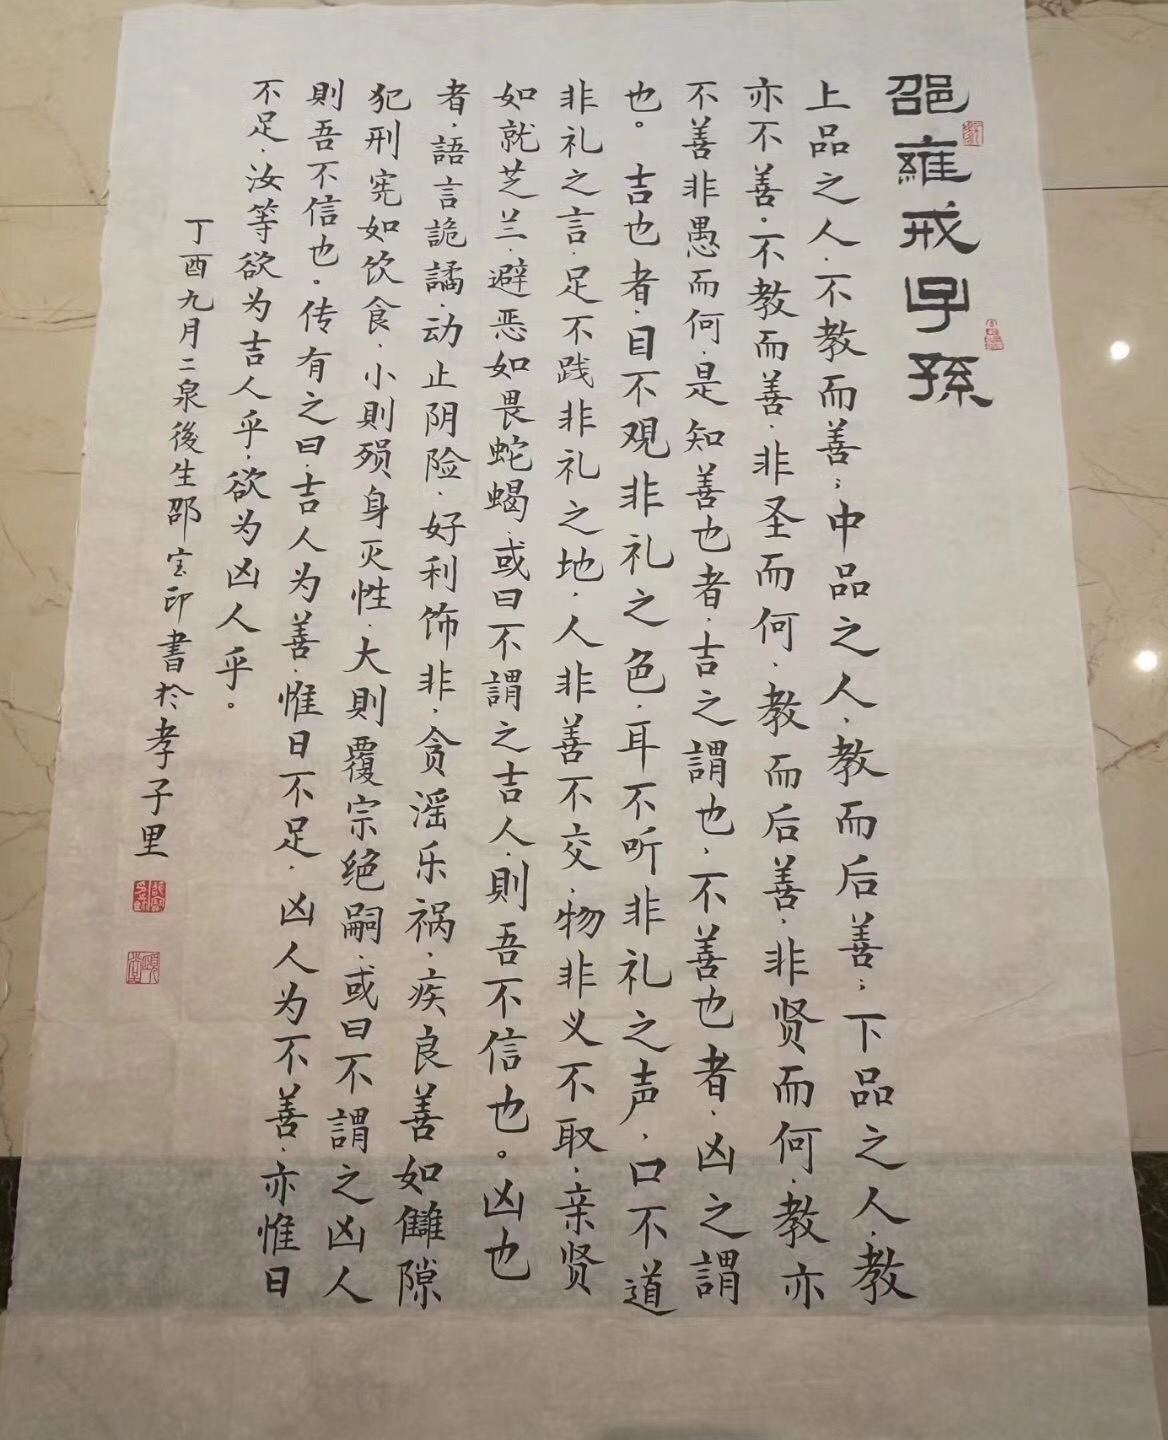 邵雍戒子孫
上品之人，不教而善；中品之人，教而后善；下品之人，教
亦不善。不教而善，非圣而何，教而后善，非贤而何，教亦
不善非愚而何，是知善也者，吉之謂也，不善也者，凶之謂
也。吉也者，目不观非礼之色，耳不听非礼之声，口不道
非礼之言，足不践非礼之地，人非善不交，物非义不取，亲贤
如就芝兰，避恶如畏蛇蝎，或曰不謂之吉人，則吾不信也。凶也
者，語言詭譎，动止阴险，好利饰非，贪滛乐祸，疾良善如讎隙
犯刑宪如饮食，小則殒身灭性，大則覆宗绝嗣，或曰不謂之凶人
則吾不信也。传有之曰，吉人为善，惟日不足，凶人为不善，亦惟日
不足，汝等欲为吉人乎，欲为凶人乎。
丁酉九月二泉後生邵宝印書於孝子里